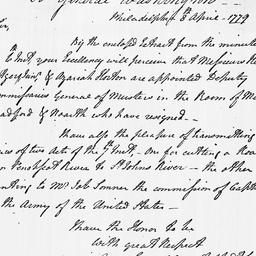 General Washington
Philadelphia 5th April - 1779
Sir,
By the enclosd Extract from the minutes
Inst your Excellency will perceive that Messieurs
& Azariah Horton are appointed Deputy
ommissaries General of Musters in the Room of Me
adford & Hoarth who have resigned -
I have also the pleasure of transmitting
ies of two Acts of the Inst, One for cutting a Road
Penobscot River to St Johns River - the other
nting to Mr Job Sumner the commission of Capt
the Army of the United States -
I have the Honor to be
With great Respect